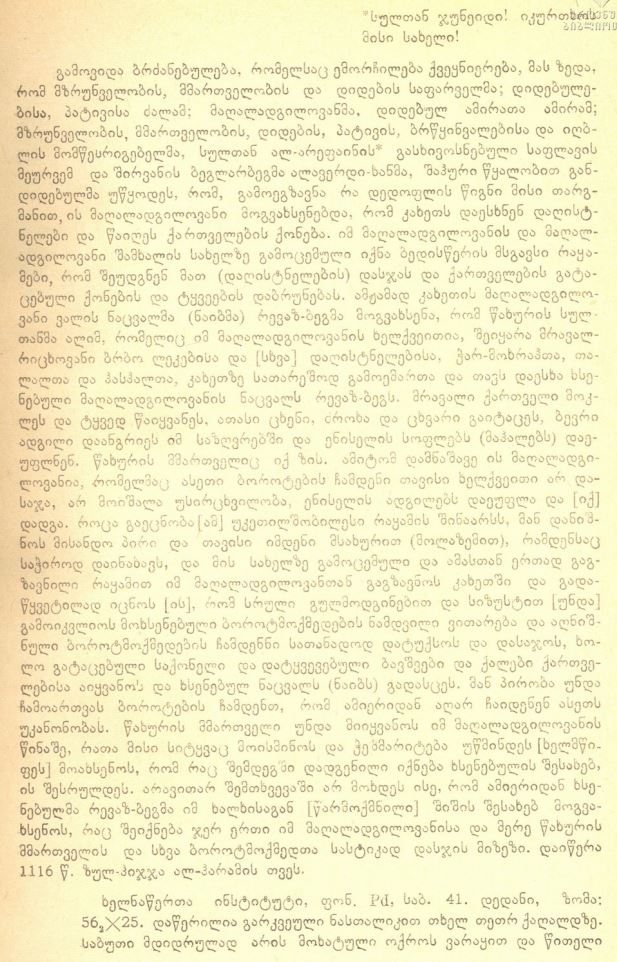 *სულთან ჯუნეიდი! იკურთხოს
მისი სახელი!
გამოვიდა ბრძანებულება, რომელსაც ემორჩილება ქვეყნიერება, მას ზედა,
რომ მზრუნველობის, მმართველობის და დიდების საფარველმა; დიდებულე-
ბისა, პატივისა ძალამ; მაღალადგილოვანმა, დიდებულ ამირათა ამირამ;
მზრუნველობის, მმართველობის, დიდების, პატივის, ბრწყინვალებისა და იღბ-
ლის მომწესრიგებელმა, სულთან ალ-არეფაინის* გასხივოსნებული საფლავის
მეურვემ და შირვანის ბეგლარბეგმა ალავერდი-ხანმა, შაჰური წყალობით გან-
დიდებულმა უწყოდეს, რომ, გამოეგზავნა რა დედოფლის წიგნი მისი თარგ-
მანით, ის მაღალადგილოვანი მოგვახსენებდა, რომ კახეთს დაესხნენ დაღისტ-
ნელები და წაიღეს ქართველების ქონება. იმ მაღალადგილოვანის და მაღალ-
ადგილოვანი შამხალის სახელზე გამოცემული იქნა ბედისწერის მსგავსი რაყა-
მები, რომ შეუდგნენ მათ (დაღისტნელების) დასჯას და ქართველების გატა-
ცებული ქონების და ტყვეების დაბრუნებას. ამჟამად კახეთის მაღალადგილო-
ვანი ვალის ნაცვალმა (ნაიბმა) რევაზ-ბეგმა მოგვახსენა, რომ წახურის სულ-
თანმა ალიმ, რომელიც იმ მაღალადგილოვანის ხელქვეითია, შეიყარა მრავალ-
რიცხოვანი ბრბო ლეკებისა და [სხვა] დაღისტნელებისა, ჭარ-მოხრახთა, თა-
ლალთა და ჰასჰალთა, კახეთზე სათარეშოდ გამოემართა და თავს დაესხა ხსე-
ნებული მაღალადგილოვანის ნაცვალს რევაზ-ბეგს. მრავალი ქართველი მოკ-
ლეს და ტყვედ წაიყვანეს, ათასი ცხენი, ძროხა და ცხვარი გაიტაცეს, ბევრი
ადგილი დაანგრიეს იმ საზღვრებში და ენისელის სოფლებს (მაჰალებს) დაე-
უფლნენ. წახურის მმართველიც იქ ზის. ამიტომ დამნაშავე ის მაღალადგი-
ლოვანია, რომელმაც ასეთი ბოროტების ჩამდენი თავისი ხელქვეითი არ და-
საჯა, არ მოიშალა უსირცხვილობა, ენისელის ადგილებს დაეუფლა და [იქ]
დადგა. როცა გაეცნობა [ამ] უკეთილშობილესი რაყამის შინაარსს, მან დანიშ-
ნოს მისანდო პირი და თავისი იმდენი მსახურით (მოლაზემით), რამდენსაც
საჭიროდ დაინახავს, და მის სახელზე გამოცემული და ამასთან ერთად გაგ-
ზავნილი რაყამით იმ მაღალადგილოვანთან გაგზავნოს კახეთში და გადა-
წყვეტილად იცნოს [ის], რომ სრული გულმოდგინებით და სიზუსტით [უნდა]
გამოიკვლიოს მოხსენებული ბოროტმოქმედების ნამდვილი ვითარება და აღნიშ-
ნული ბოროტმოქმედების ჩამდენნი სათანადოდ დატუქსოს და დასაჯოს, ხო-
ლო გატაცებული საქონელი და დატყვევებული ბავშვები და ქალები ქართვე-
ლებისა აიყვანოს და ხსენებულ ნაცვალს (ნაიბს) გადასცეს. მან პირობა უნდა
ჩამოართვას ბოროტების ჩამდენთ, რომ ამიერიდან აღარ ჩაიდენენ ასეთს
უკანონობას. წახურის მმართველი უნდა მიიყვანოს იმ მაღალადგილოვანის
წინაშე, რათა მისი სიტყვაც მოისმინოს და ჭეშმარიტება უწმინდეს [ხელმწი-
ფეს] მოახსენოს, რომ რაც შემდეგში დადგენილი იქნება ხსენებულის შესახებ,
ის შესრულდეს. არავითარ შემთხვევაში არ მოხდეს ისე, რომ ამიერიდან ხსე-
ნებულმა რევაზ-ბეგმა იმ ხალხისაგან [წარმოქმნილი] შიშის შესახებ მოგვა-
ხსენოს, რაც შეიქნება ჯერ ერთი იმ მაღალადგილოვანისა და მერე წახურის
მმართველის და სხვა ბოროტმოქმედთა სასტიკად დასჯის მიზეზი. დაიწერა
1116 წ. ზულ-ჰიჯჯა ალ-ჰარამის თვეს.
ხელნაწერთა ინსტიტუტი, ფონ. Pd, საბ. 41. დედანი, ზომა:
56,2×25. დაწერილია გარკვეული ნასთალიკით თხელ თეთრ ქაღალდზე.
საბუთი მდიდრულად არის მოხატული ოქროს ვარაყით და წითელი